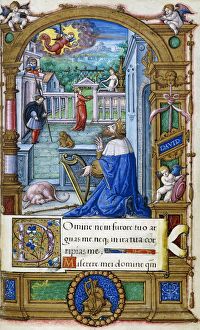 DAVID
Domine ne in furore tuo ar
guas me neq; in ira tua cor
ripias me,
Miserere mei domine qm̄